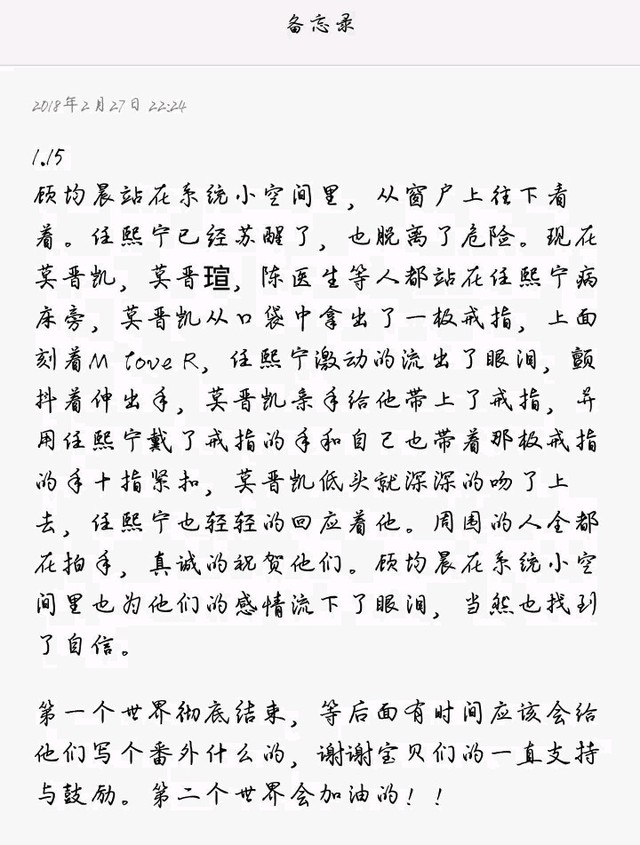 备忘录
2018年2月27日 22:24
1.15
顾均晨站在系统小空间里，从窗户上往下看
着。任熙宁已经苏醒了，也脱离了危险。现在
莫晋凯，莫晋瑄，陈医生等人都站在任熙宁病
床旁，莫晋凯从口袋中拿出了一极戒指，上面
刻着M love R，任熙宁激动的流出了眼泪，颤
抖着伸出手，莫晋凯亲手给他带上了戒指，并
用任熙宁戴了戒指的手和自己也带着那极戒指
的手十指紧扣，莫晋凯低头就深深的吻了上
去，任熙宁也轻轻的回应着他。周围的人全都
在拍手，真诚的祝贺他们。顾均晨在系统小空
间里也为他们的感情流下了眼泪，当然也找到
了自信。
第一个世界彻底结束，等后面有时间应该会给
他们写个番外什么的，谢谢宝贝们的一直支持
与鼓励。第二个世界会加油的！！